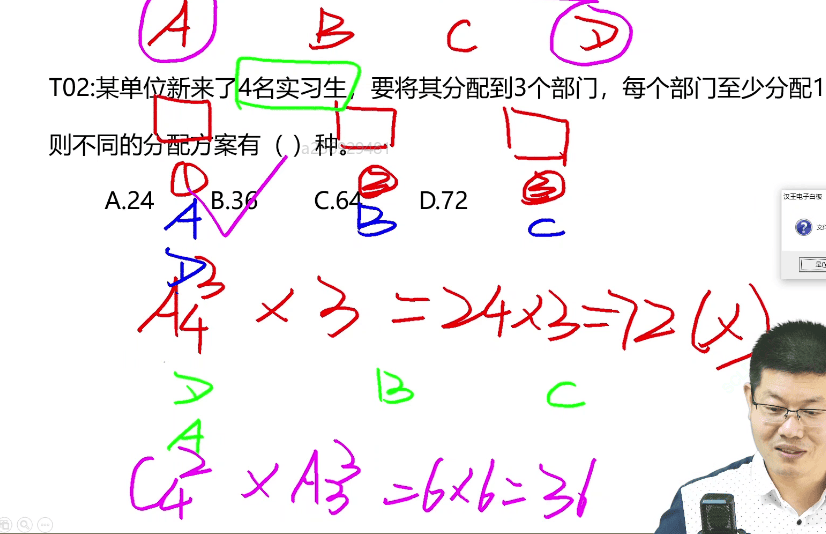 A B C D
T02:某单位新来了4名实习生，要将其分配到3个部门，每个部门至少分配1
则不同的分配方案有（ ）种。
① ② ③
A.24 B.36 C.64 D.72
A B C
D
A₄³ × 3 = 24×3=72(×)
D B C
A
C₄² × A₃³ =6×6=36
汉王电子白板